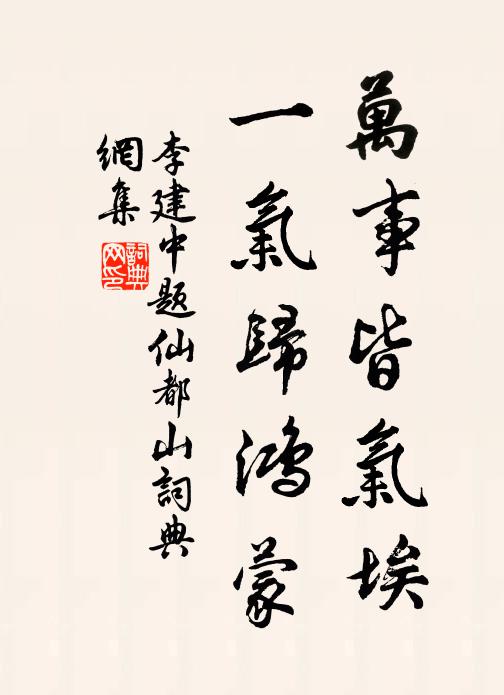 萬事皆氣埃
一氣歸鴻蒙
李建中題仙都山詞典
網集
詞典網印